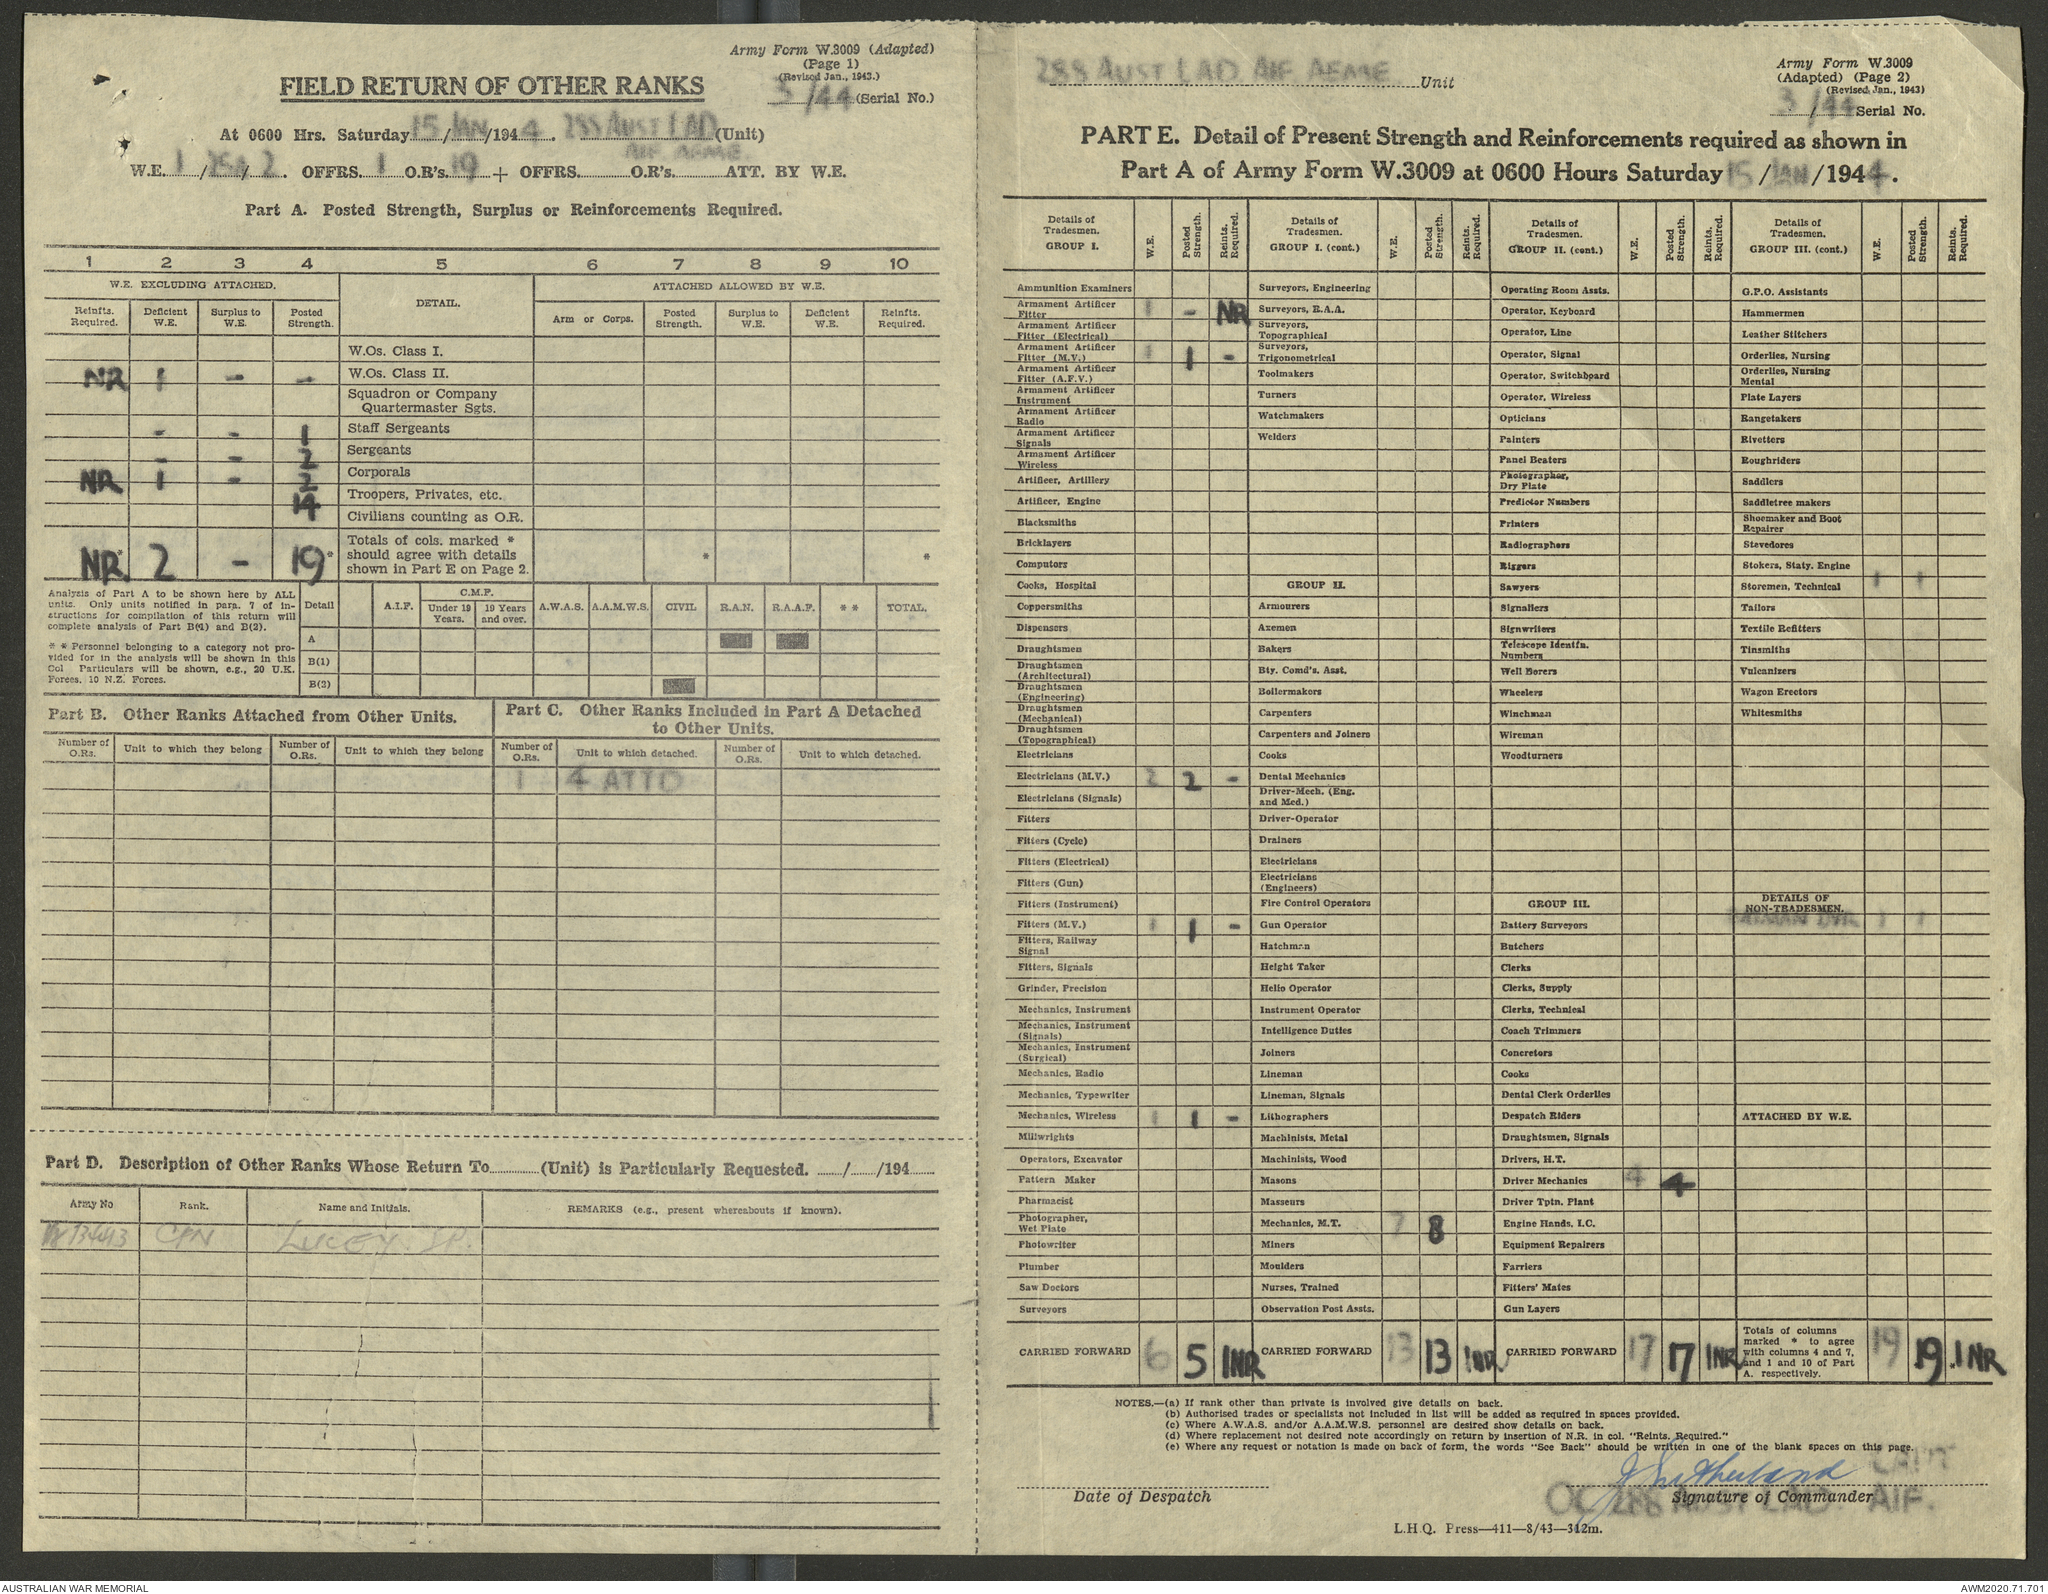 Army Form W.3009 (Adapted)
(Page 1)
(Revised Jan., 1943.)
FIELD RETURN OF OTHER RANKS
3/44 (Serial No.)
At 0600 Hrs. Saturday 15/JAN/1944. 288 AUST LAD (Unit)
AIF AEME.
W.E. 1/25A/2. OFFRS. 1 O.R's. 19 + OFFRS. O.R's. ATT. BY W.E.
Part A. Posted Strength, Surplus or Reinforcements Required.
1 2 3 4 5 6 7 8 9 10
W.E. EXCLUDING ATTACHED. DETAIL. ATTACHED ALLOWED BY W.E.
Reinfts. Required. Deficient W.E. Surplus to W.E. Posted Strength. Arm or Corps. Posted Strength. Surplus to W.E. Deficient W.E. Reinfts. Required.
W.Os. Class I.
NR 1 - - W.Os. Class II.
Squadron or Company
Quartermaster Sgts.
- - 1 Staff Sergeants
- - 2 Sergeants
NR 1 - 2 Corporals
14 Troopers, Privates, etc.
Civilians counting as O.R.
NR* 2 - 19* Totals of cols. marked * * *
should agree with details
shown in Part E on Page 2.
Analysis of Part A to be shown here by ALL
units. Only units notified in para. 7 of in-
structions for compilation of this return will
complete analysis of Part B(1) and B(2).
* * Personnel belonging to a category not pro-
vided for in the analysis will be shown in this
Col Particulars will be shown, e.g., 20 U.K.
Forces, 10 N.Z. Forces.
Detail A.I.F. C.M.F. Under 19 Years. 19 Years and over. A.W.A.S. A.A.M.W.S. CIVIL R.A.N. R.A.A.F. * * TOTAL.
A
B(1)
B(2)
Part B. Other Ranks Attached from Other Units.
Part C. Other Ranks Included in Part A Detached
to Other Units.
Number of O.Rs. Unit to which they belong Number of O.Rs. Unit to which they belong Number of O.Rs. Unit to which detached. Number of O.Rs. Unit to which detached.
1 4 ATTD
Part D. Description of Other Ranks Whose Return To (Unit) is Particularly Requested. / /194
Army No Rank. Name and Initials. REMARKS (e.g., present whereabouts if known).
CFN LUCEY
288 AUST LAD AIF AEME. Unit
Army Form W.3009
(Adapted) (Page 2)
(Revised Jan., 1943)
3/44 Serial No.
PART E. Detail of Present Strength and Reinforcements required as shown in
Part A of Army Form W.3009 at 0600 Hours Saturday 15/JAN/1944.
Details of Tradesmen. GROUP I. W.E. Posted Strength. Reints. Required.
Ammunition Examiners
Armament Artificer Fitter 1 - NR
Armament Artificer Fitter (Electrical)
Armament Artificer Fitter (M.V.) 1 1 -
Armament Artificer Fitter (A.F.V.)
Armament Artificer Instrument
Armament Artificer Radio
Armament Artificer Signals
Armament Artificer Wireless
Artificer, Artillery
Artificer, Engine
Blacksmiths
Bricklayers
Computors
Cooks, Hospital
Coppersmiths
Dispensers
Draughtsmen
Draughtsmen (Architectural)
Draughtsmen (Engineering)
Draughtsmen (Mechanical)
Draughtsmen (Topographical)
Electricians
Electricians (M.V.) 2 2 -
Electricians (Signals)
Fitters
Fitters (Cycle)
Fitters (Electrical)
Fitters (Gun)
Fitters (Instrument)
Fitters (M.V.) 1 1 -
Fitters, Railway Signal
Fitters, Signals
Grinder, Precision
Mechanics, Instrument
Mechanics, Instrument (Signals)
Mechanics, Instrument (Surgical)
Mechanics, Radio
Mechanics, Typewriter
Mechanics, Wireless 1 1 -
Millwrights
Operators, Excavator
Pattern Maker
Pharmacist
Photographer, Wet Plate
Photowriter
Plumber
Saw Doctors
Surveyors
CARRIED FORWARD 6 5 1NR
Details of Tradesmen. GROUP I. (cont.) W.E. Posted Strength. Reints. Required.
Surveyors, Engineering
Surveyors, R.A.A.
Surveyors, Topographical
Surveyors, Trigonometrical
Toolmakers
Turners
Watchmakers
Welders
GROUP II.
Armourers
Axemen
Bakers
Bty. Comd's. Asst.
Boilermakers
Carpenters
Carpenters and Joiners
Cooks
Dental Mechanics
Driver-Mech. (Eng. and Med.)
Driver-Operator
Drainers
Electricians
Electricians (Engineers)
Fire Control Operators
Gun Operator
Hatchman
Height Taker
Helio Operator
Instrument Operator
Intelligence Duties
Joiners
Lineman
Lineman, Signals
Lithographers
Machinists, Metal
Machinists, Wood
Masons
Masseurs
Mechanics, M.T. 7 8
Miners
Moulders
Nurses, Trained
Observation Post Assts.
CARRIED FORWARD 13 13 1NR
Details of Tradesmen. GROUP II. (cont.) W.E. Posted Strength. Reints. Required.
Operating Room Assts.
Operator, Keyboard
Operator, Line
Operator, Signal
Operator, Switchboard
Operator, Wireless
Opticians
Painters
Panel Beaters
Photographer, Dry Plate
Predictor Numbers
Printers
Radiographers
Riggers
Sawyers
Signallers
Signwriters
Telescope Identfn. Numbers
Well Borers
Wheelers
Winchman
Wireman
Woodturners
GROUP III.
Battery Surveyors
Butchers
Clerks
Clerks, Supply
Clerks, Technical
Coach Trimmers
Concretors
Cooks
Dental Clerk Orderlies
Despatch Riders
Draughtsmen, Signals
Drivers, H.T.
Driver Mechanics 4 4
Driver Tptn. Plant
Engine Hands, I.C.
Equipment Repairers
Farriers
Fitters' Mates
Gun Layers
CARRIED FORWARD 17 17 1NR
Details of Tradesmen. GROUP III. (cont.) W.E. Posted Strength. Reints. Required.
G.P.O. Assistants
Hammermen
Leather Stitchers
Orderlies, Nursing
Orderlies, Nursing Mental
Plate Layers
Rangetakers
Rivetters
Roughriders
Saddlers
Saddletree makers
Shoemaker and Boot Repairer
Stevedores
Stokers, Staty. Engine
Storemen, Technical 1 1
Tailors
Textile Refitters
Tinsmiths
Vulcanizers
Wagon Erectors
Whitesmiths
DETAILS OF NON-TRADESMEN.
BATMAN DVR 1 1
ATTACHED BY W.E.
Totals of columns marked * to agree with columns 4 and 7, and 1 and 10 of Part A. respectively. 19 19 *1NR
NOTES.—(a) If rank other than private is involved give details on back.
(b) Authorised trades or specialists not included in list will be added as required in spaces provided.
(c) Where A.W.A.S. and/or A.A.M.W.S. personnel are desired show details on back.
(d) Where replacement not desired note accordingly on return by insertion of N.R. in col. "Reints. Required."
(e) Where any request or notation is made on back of form, the words "See Back" should be written in one of the blank spaces on this page.
J Sutherland CAPT
Date of Despatch
Signature of Commander
OC 288 AUST LAD. AIF.
L.H.Q. Press—411—8/43—312m.
AUSTRALIAN WAR MEMORIAL
AWM2020.71.701